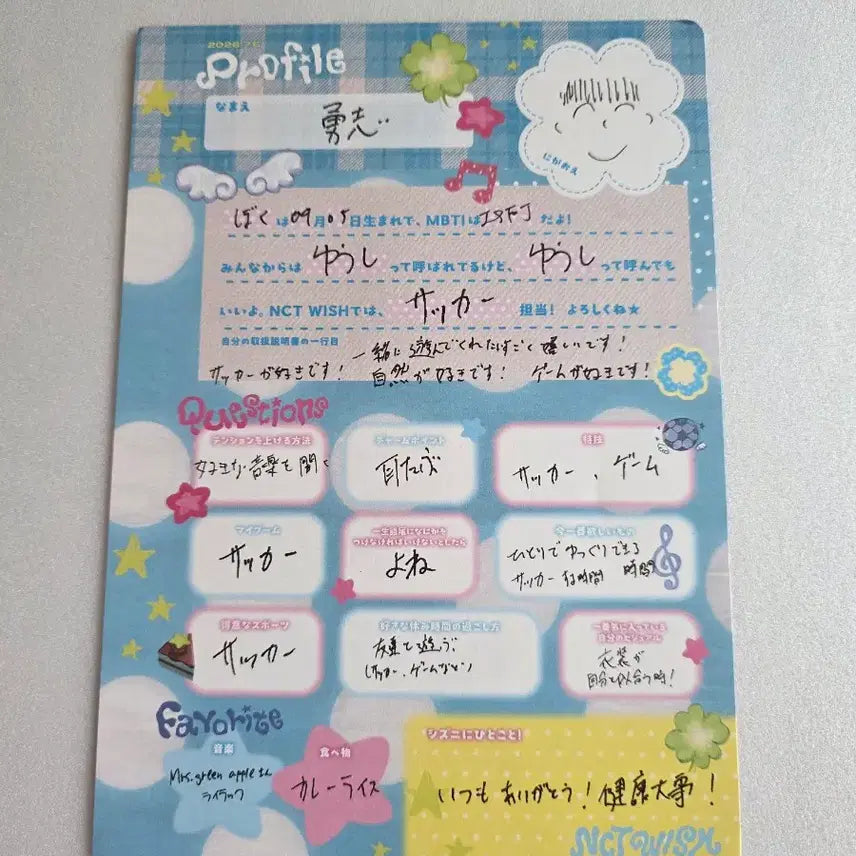 Profile
なまえ
勇志
にがおえ
ぼくは09月05日生まれで、MBTIはISFJだよ!
みんなからはゆうしって呼ばれてるけど、ゆうしって呼んでも
いいよ。NCT WISHでは、サッカー担当! よろしくね★
自分の取扱説明書の一行目
一緒に遊んでくれたらすごく嬉しいです!
サッカーが好きです! 自然が好きです! ゲームが好きです!
Questions
テンションを上げる方法
好きな音楽を聞く
チャームポイント
耳たぶ
特技
サッカー、ゲーム
マイブーム
サッカー
一生語尾になにかを
つけなければいけないとしたら
よね
今一番欲しいもの
ひとりでゆっくりできる時間
サッカーする時間
得意なスポーツ
サッカー
好きな休み時間の過ごし方
友達と遊ぶ
サッカー、ゲームなど
一番気に入っている
自分のビジュアル
衣装が
自分と似合う時!
Favorite
音楽
Mrs. green appleさん
ライラック
食べ物
カレーライス
シズニにひとこと!
いつもありがとう!健康大事!
NCT WISH